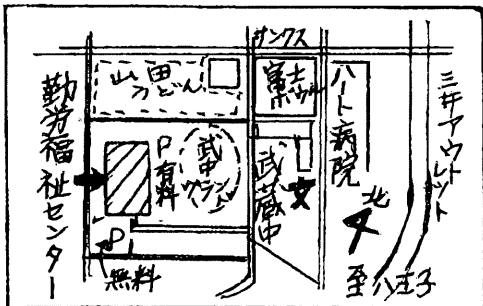 サンクス
山田
うどん
富士
ボウル
ハート病院
三井アウトレット
勤労福祉センター
P
有料
武中
グランド
武蔵中
文
北
P
無料
至八王子